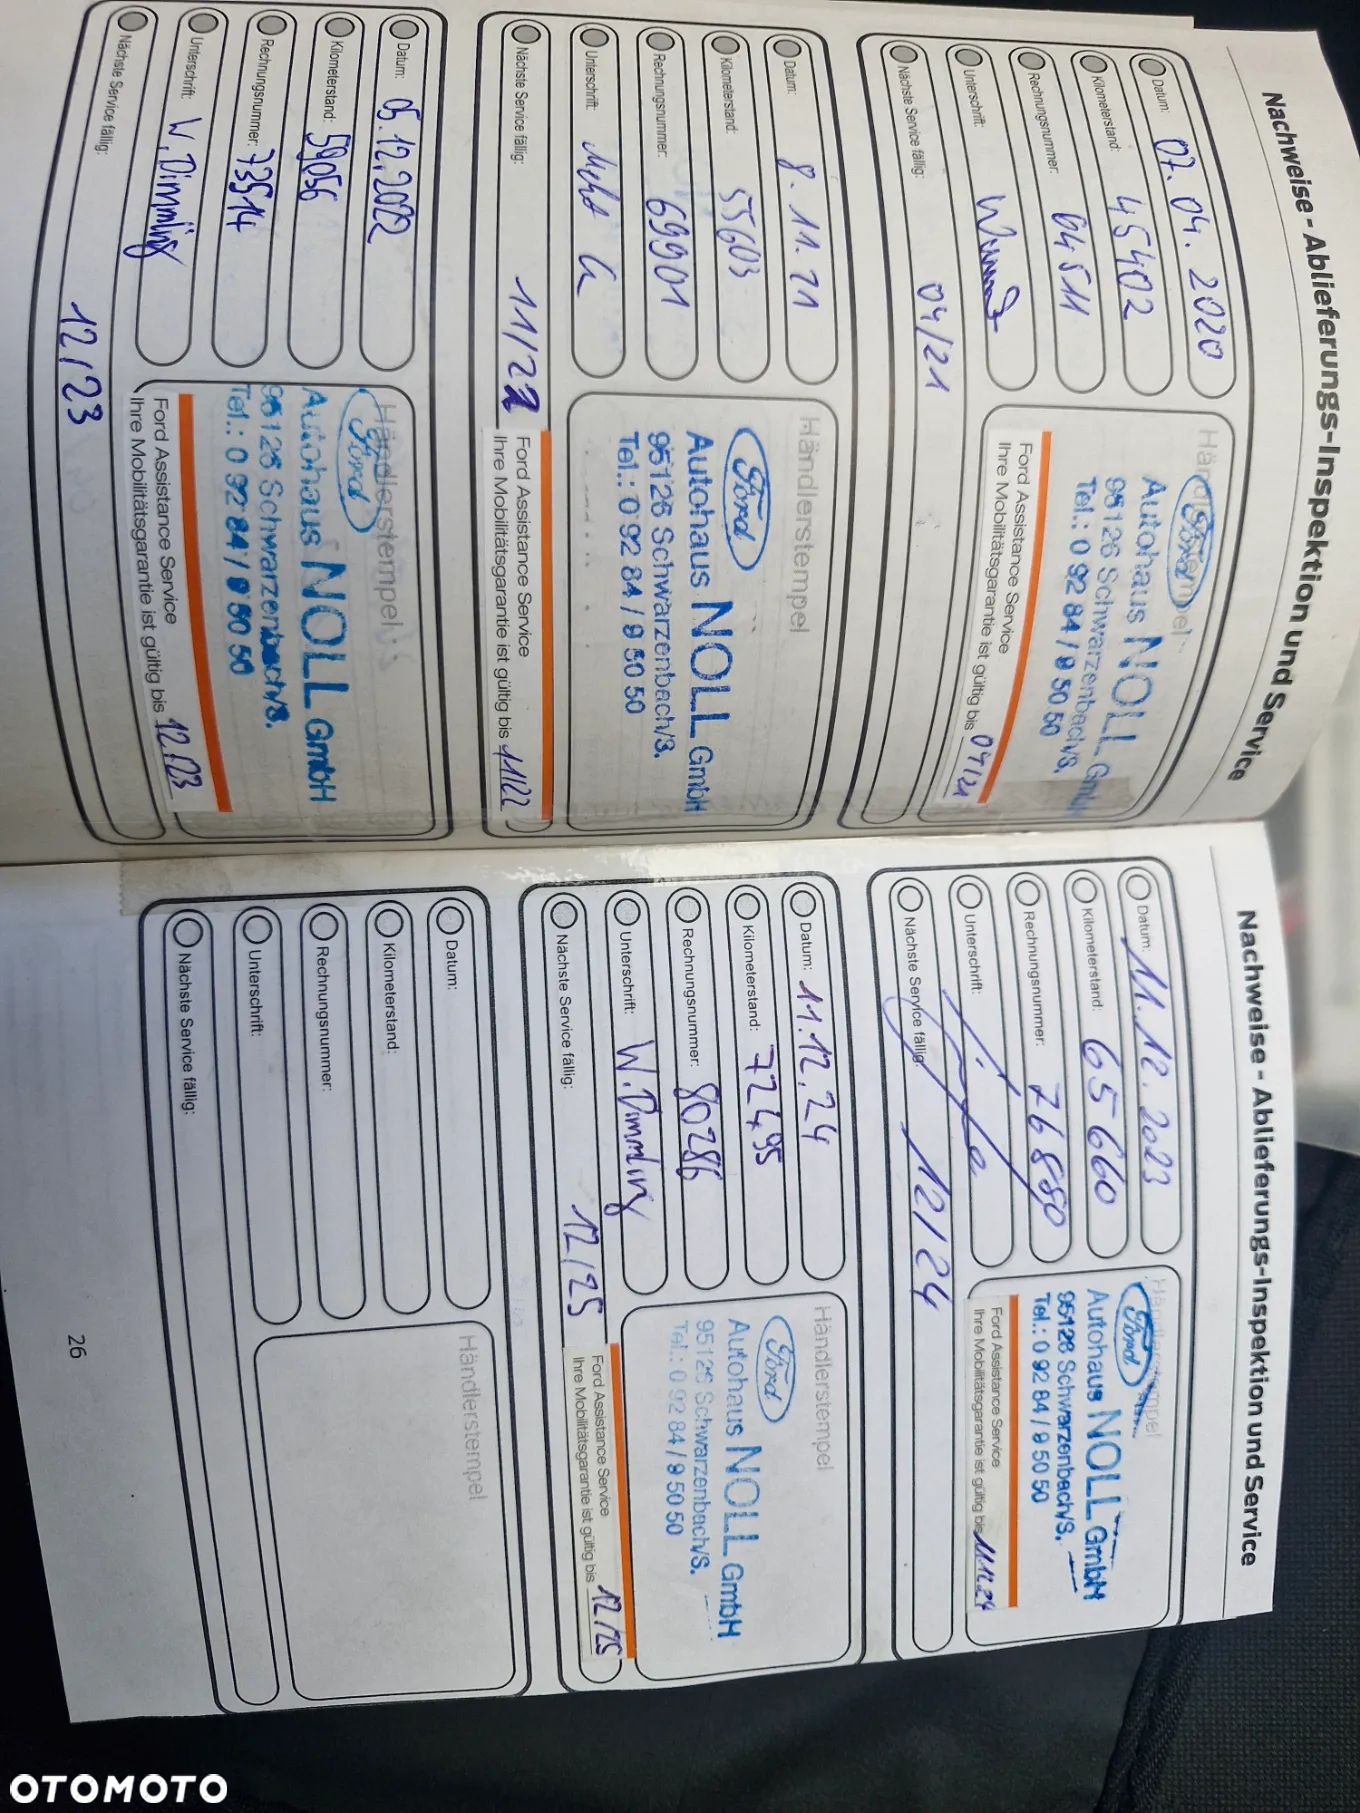 Nachweise - Ablieferungs-Inspektion und Service
Datum: 07.04.2020
Kilometerstand: 45402
Rechnungsnummer: 64511
Unterschrift:
Nächste Service fällig: 04/21
Händlerstempel
Ford
Autohaus NOLL GmbH
95126 Schwarzenbach/S.
Tel.: 0 92 84 / 9 50 50
Ford Assistance Service
Ihre Mobilitätsgarantie ist gültig bis 04/21
Datum: 8.11.21
Kilometerstand: 55603
Rechnungsnummer: 69901
Unterschrift:
Nächste Service fällig: 11/22
Händlerstempel
Ford
Autohaus NOLL GmbH
95126 Schwarzenbach/S.
Tel.: 0 92 84 / 9 50 50
Ford Assistance Service
Ihre Mobilitätsgarantie ist gültig bis 11/22
Datum: 05.12.2022
Kilometerstand: 59056
Rechnungsnummer: 73514
Unterschrift: W. Dimmling
Nächste Service fällig: 12/23
Händlerstempel
Ford
Autohaus NOLL GmbH
95126 Schwarzenbach/S.
Tel.: 0 92 84 / 9 50 50
Ford Assistance Service
Ihre Mobilitätsgarantie ist gültig bis 12.23
Nachweise - Ablieferungs-Inspektion und Service
Datum: 11.12.2023
Kilometerstand: 65660
Rechnungsnummer: 76880
Unterschrift:
Nächste Service fällig: 12/24
Händlerstempel
Ford
Autohaus NOLL GmbH
95126 Schwarzenbach/S.
Tel.: 0 92 84 / 9 50 50
Ford Assistance Service
Ihre Mobilitätsgarantie ist gültig bis
Datum: 11.12.24
Kilometerstand: 72495
Rechnungsnummer: 80286
Unterschrift: W. Dimmling
Nächste Service fällig: 12/25
Händlerstempel
Ford
Autohaus NOLL GmbH
95126 Schwarzenbach/S.
Tel.: 0 92 84 / 9 50 50
Ford Assistance Service
Ihre Mobilitätsgarantie ist gültig bis 12/25
Datum:
Kilometerstand:
Rechnungsnummer:
Unterschrift:
Nächste Service fällig:
Händlerstempel
26
OTOMOTO